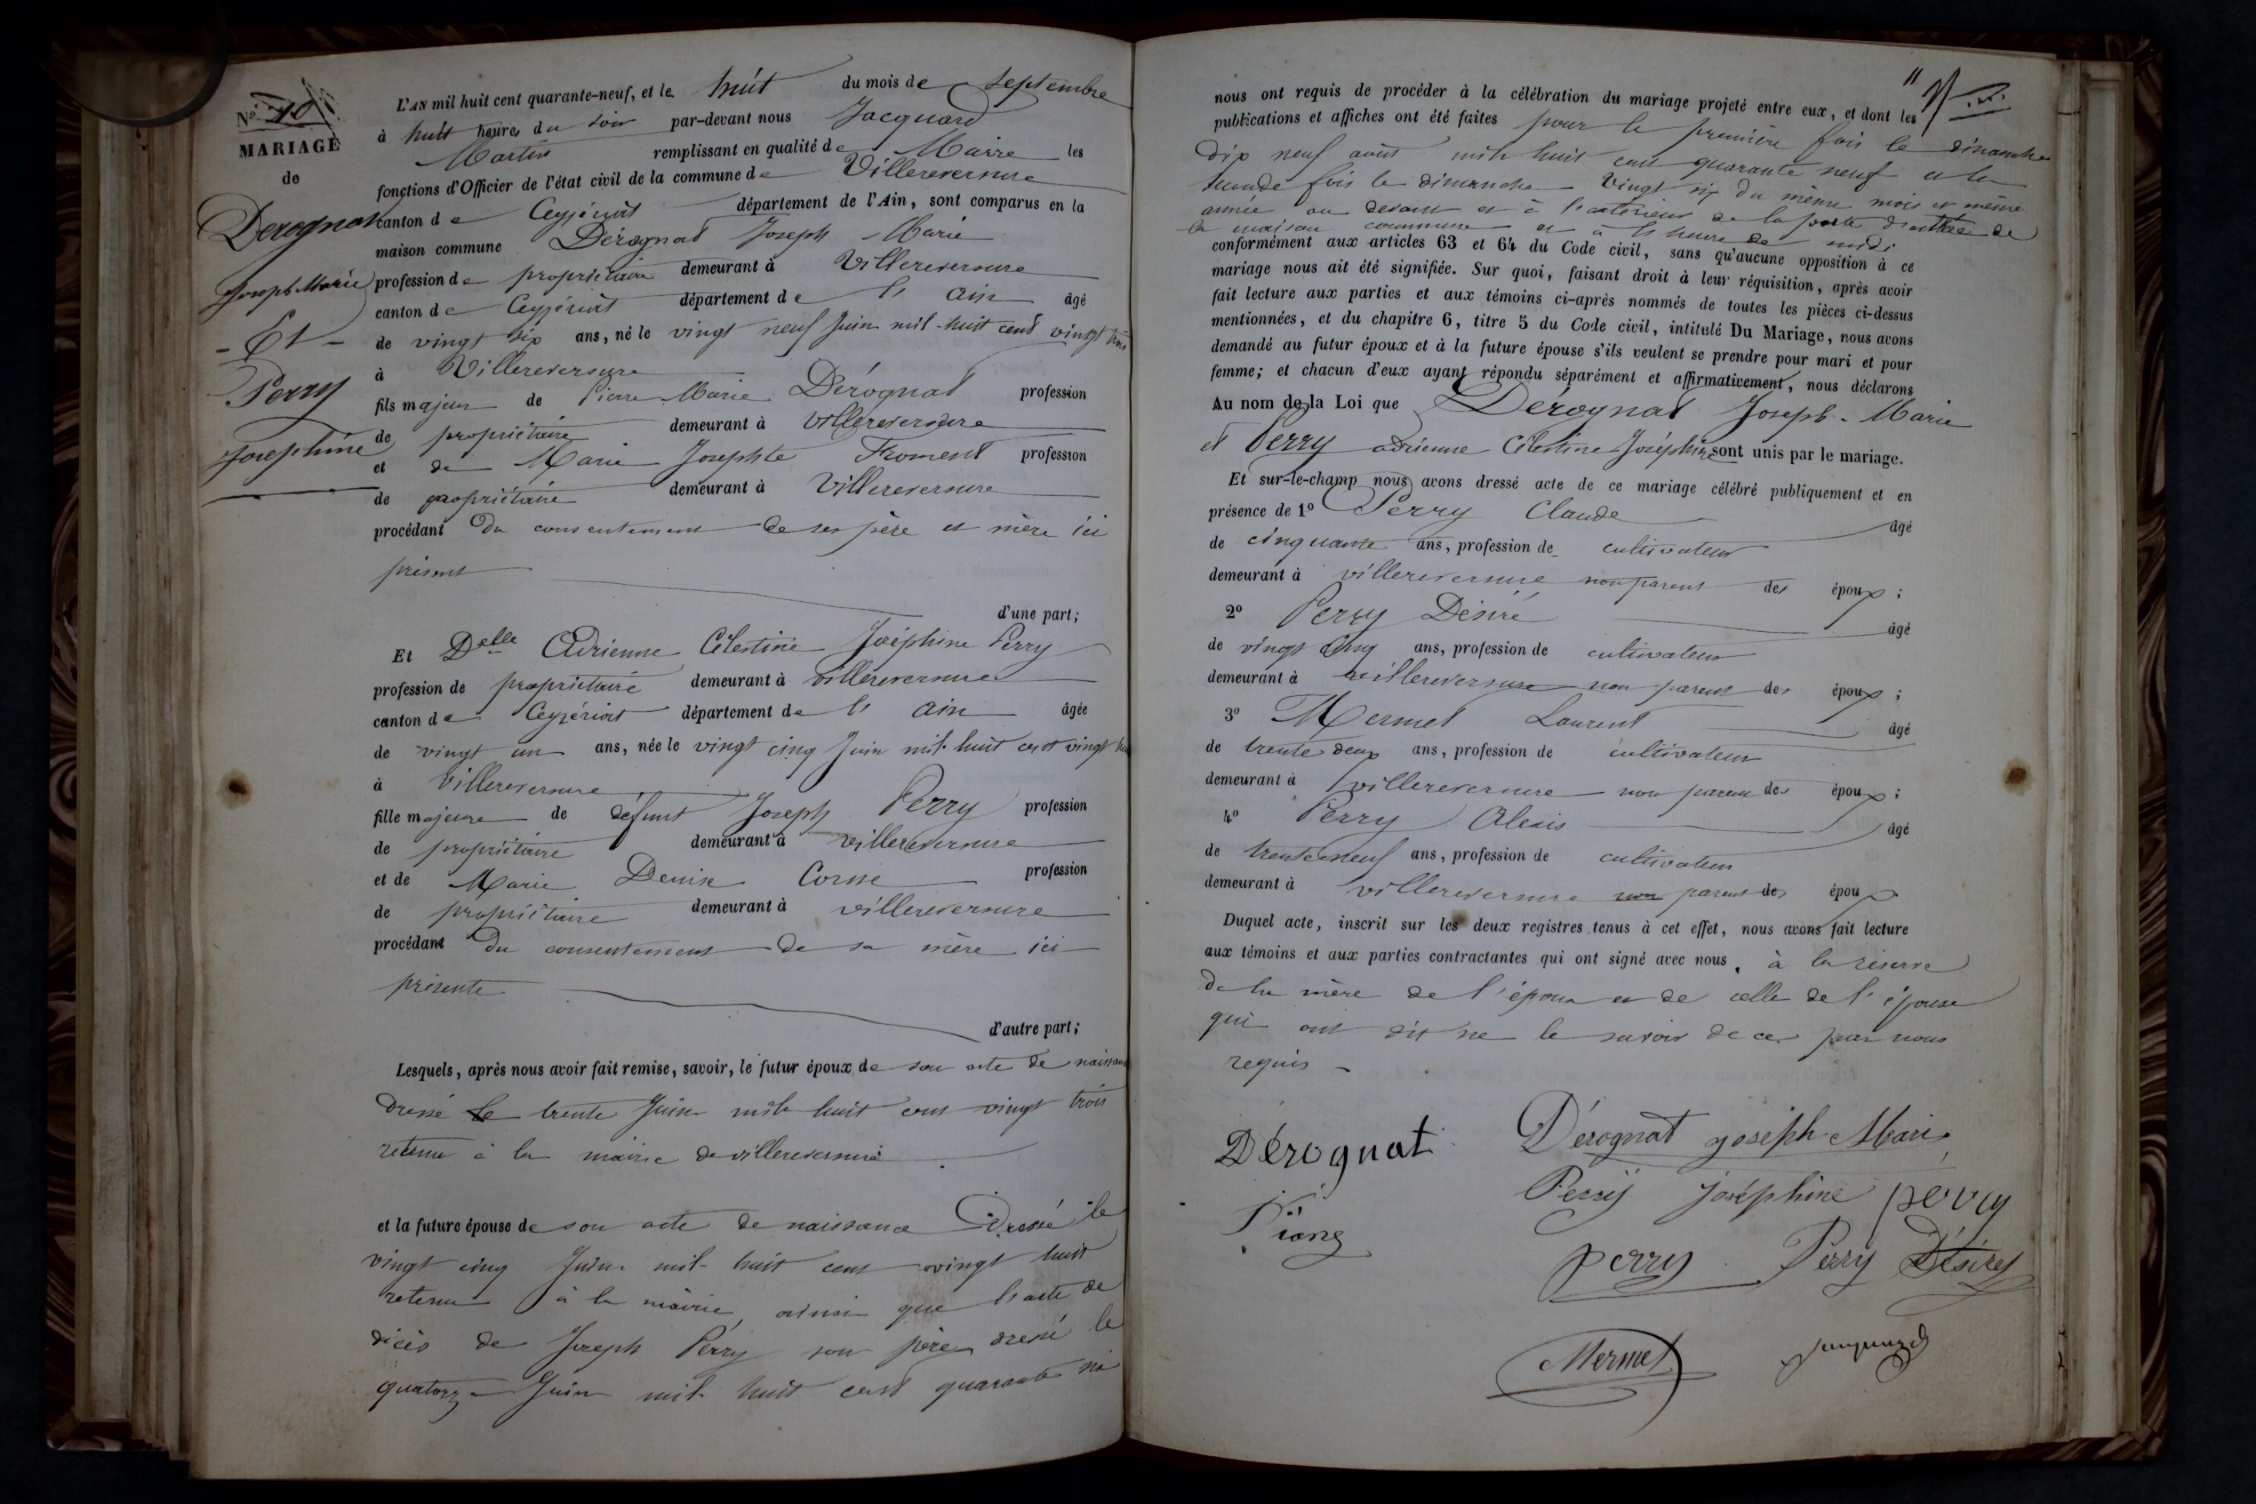 N° 10
MARIAGE
de
Derognat
Joseph Marie
- Et -
Perry
Joséphine
L'AN mil huit cent quarante-neuf, et le huit du mois de septembre
à huit heures du soir par-devant nous Jacquard
Martin remplissant en qualité de Maire les
fonctions d'Officier de l'état civil de la commune de Villereversure
canton de Ceyzériat département de l'Ain, sont comparus en la
maison commune Dérognat Joseph Marie
profession de propriétaire demeurant à Villereversure
canton de Ceyzériat département de l' ain âgé
de vingt six ans, né le vingt neuf Juin mil-huit cent vingt trois
à Villereversure
fils majeur de Pierre Marie Dérognat profession
de propriétaire demeurant à Villereversure
et de Marie Josephte Froment profession
de propriétaire demeurant à Villereversure
procédant Du consentement de ses père et mère ici
présent
d'une part;
Et Delle Adrienne Célestine Joséphine Perry
profession de propriétaire demeurant à villereversure
canton de Ceyzériat département de l' ain âgée
de vingt un ans, née le vingt cinq Juin mil-huit cent vingt
à Villereversure
fille majeure de défunt Joseph Perry profession
de propriétaire demeurant à villereversure
et de Marie Denise Corne profession
de propriétaire demeurant à villereversure
procédant Du consentement de sa mère ici
présente
d'autre part;
Lesquels, après nous avoir fait remise, savoir, le futur époux de son acte de naissance
Dressé le trente Juin mil huit cent vingt trois
retenu à la mairie de villereversure
et la future épouse de son acte de naissance Dressé le
vingt cinq Juin mil-huit cent vingt huit
retenu à la mairie ainsi que l'acte de
décès de Joseph Perry son père dressé le
quatorze Juin mil-huit cent quarante
nous ont requis de procéder à la célébration du mariage projeté entre eux, et dont les
publications et affiches ont été faites pour la première fois le dimanche
dix neuf août mil huit cent quarante neuf et la
seconde fois le dimanche vingt six du même mois et même
année au devant et à l'extérieur de la porte d'entrée de
la maison commune et à l'heure de midi
conformément aux articles 63 et 64 du Code civil, sans qu'aucune opposition à ce
mariage nous ait été signifiée. Sur quoi, faisant droit à leur réquisition, après avoir
fait lecture aux parties et aux témoins ci-après nommés de toutes les pièces ci-dessus
mentionnées, et du chapitre 6, titre 5 du Code civil, intitulé Du Mariage, nous avons
demandé au futur époux et à la future épouse s'ils veulent se prendre pour mari et pour
femme; et chacun d'eux ayant répondu séparément et affirmativement, nous déclarons
Au nom de la Loi que Dérognat Joseph-Marie
et Perry adrienne Célestine Joséphine sont unis par le mariage.
Et sur-le-champ nous avons dressé acte de ce mariage célébré publiquement et en
présence de 1° Perry Claude âgé
de cinquante ans, profession de cultivateur
demeurant à villereversure non parent des époux;
2° Perry Désiré âgé
de vingt cinq ans, profession de cultivateur
demeurant à villereversure non parent des époux;
3° Mermet Laurent âgé
de trente deux ans, profession de cultivateur
demeurant à villereversure non parent des époux;
4° Perry Alexis âgé
de trente neuf ans, profession de cultivateur
demeurant à villereversure non parent des époux
Duquel acte, inscrit sur les deux registres tenus à cet effet, nous avons fait lecture
aux témoins et aux parties contractantes qui ont signé avec nous, à la réserve
de la mère de l'époux et de celle de l'épouse
qui ont dit ne le savoir de ce par nous
requis
Dérognat Dérognat joseph Marie
Perry Joséphine perry
perry Perry Désirey
Mermet Jacquard